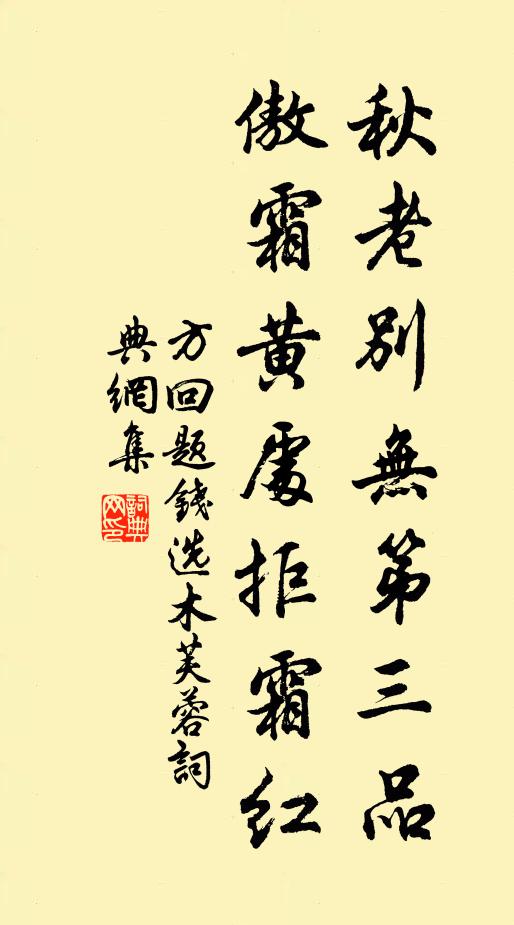 秋老別無第三品
傲霜黃處拒霜紅
方回題錢选木芙蓉詞
典網集
詞典
网印